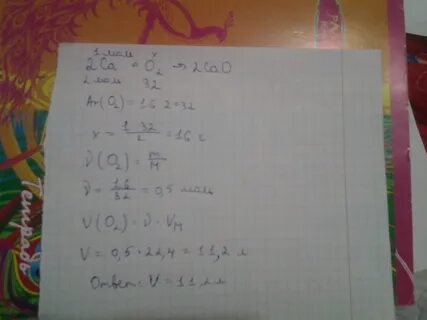 1 моль x
2Ca + O₂ → 2CaO
2 моль 32
Ar(O₂) = 16 · 2 = 32
x = 1 · 32 / 2 = 16 г
ν(O₂) = m/M
ν = 16/32 = 0,5 моль
V(O₂) = ν · Vм
V = 0,5 · 22,4 = 11,2 л
Ответ: V = 11,2 л
Тетрадь